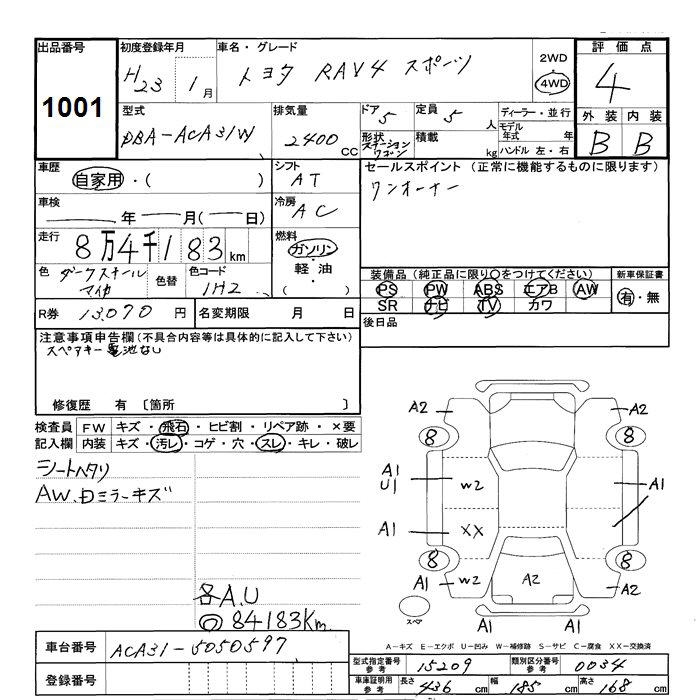 出品番号
1001
初度登録年月
H23 1月
車名・グレード
トヨタ RAV4 スポーツ
2WD
4WD
評価点
4
外装 内装
B B
型式
DBA-ACA31W
排気量
2400 CC
ドア 5
形状 ステーションワゴン
定員 5 人
積載 kg
ディーラー・並行
モデル年式 年
ハンドル 左・右
車歴
自家用・( )
シフト
AT
セールスポイント (正常に機能するものに限ります)
ワンオーナー
車検
年 月( 日)
冷房
AC
走行
8万4千183km
燃料
ガソリン・
軽油・
( )
色 ダークスチール
マイカ
色替
色コード
1H2
装備品 (純正品に限り○をつけてください)
PS PW ABS エアB AW
SR ナビ TV カワ
新車保証書
有・無
後日品
R券 13,070 円
名変期限 月 日
注意事項申告欄(不具合内容等は具体的に記入して下さい)
スペアキー電池なし
修復歴 有 〔箇所 〕
検査員 FW キズ・飛石・ヒビ割・リペア跡・×要
記入欄 内装 キズ・汚レ・コゲ・穴・スレ・キレ・破レ
シートヘタリ
AW、日ミラーキズ
各A.U
◎ 84183Km
A2 A2
8 8
A1
U1 W2 A1
A1 XX
8 8
A1 W2 A2 A2
スペア
A1 A1
A-キズ E-エクボ U-凹み W-補修跡 S-サビ C-腐食 XX-交換済
車台番号 ACA31-5050597
登録番号
型式指定番号 参考 15209
類別区分番号 参考 0034
車庫証明用 参考 長さ 436 cm 幅 185 cm 高さ 168 cm